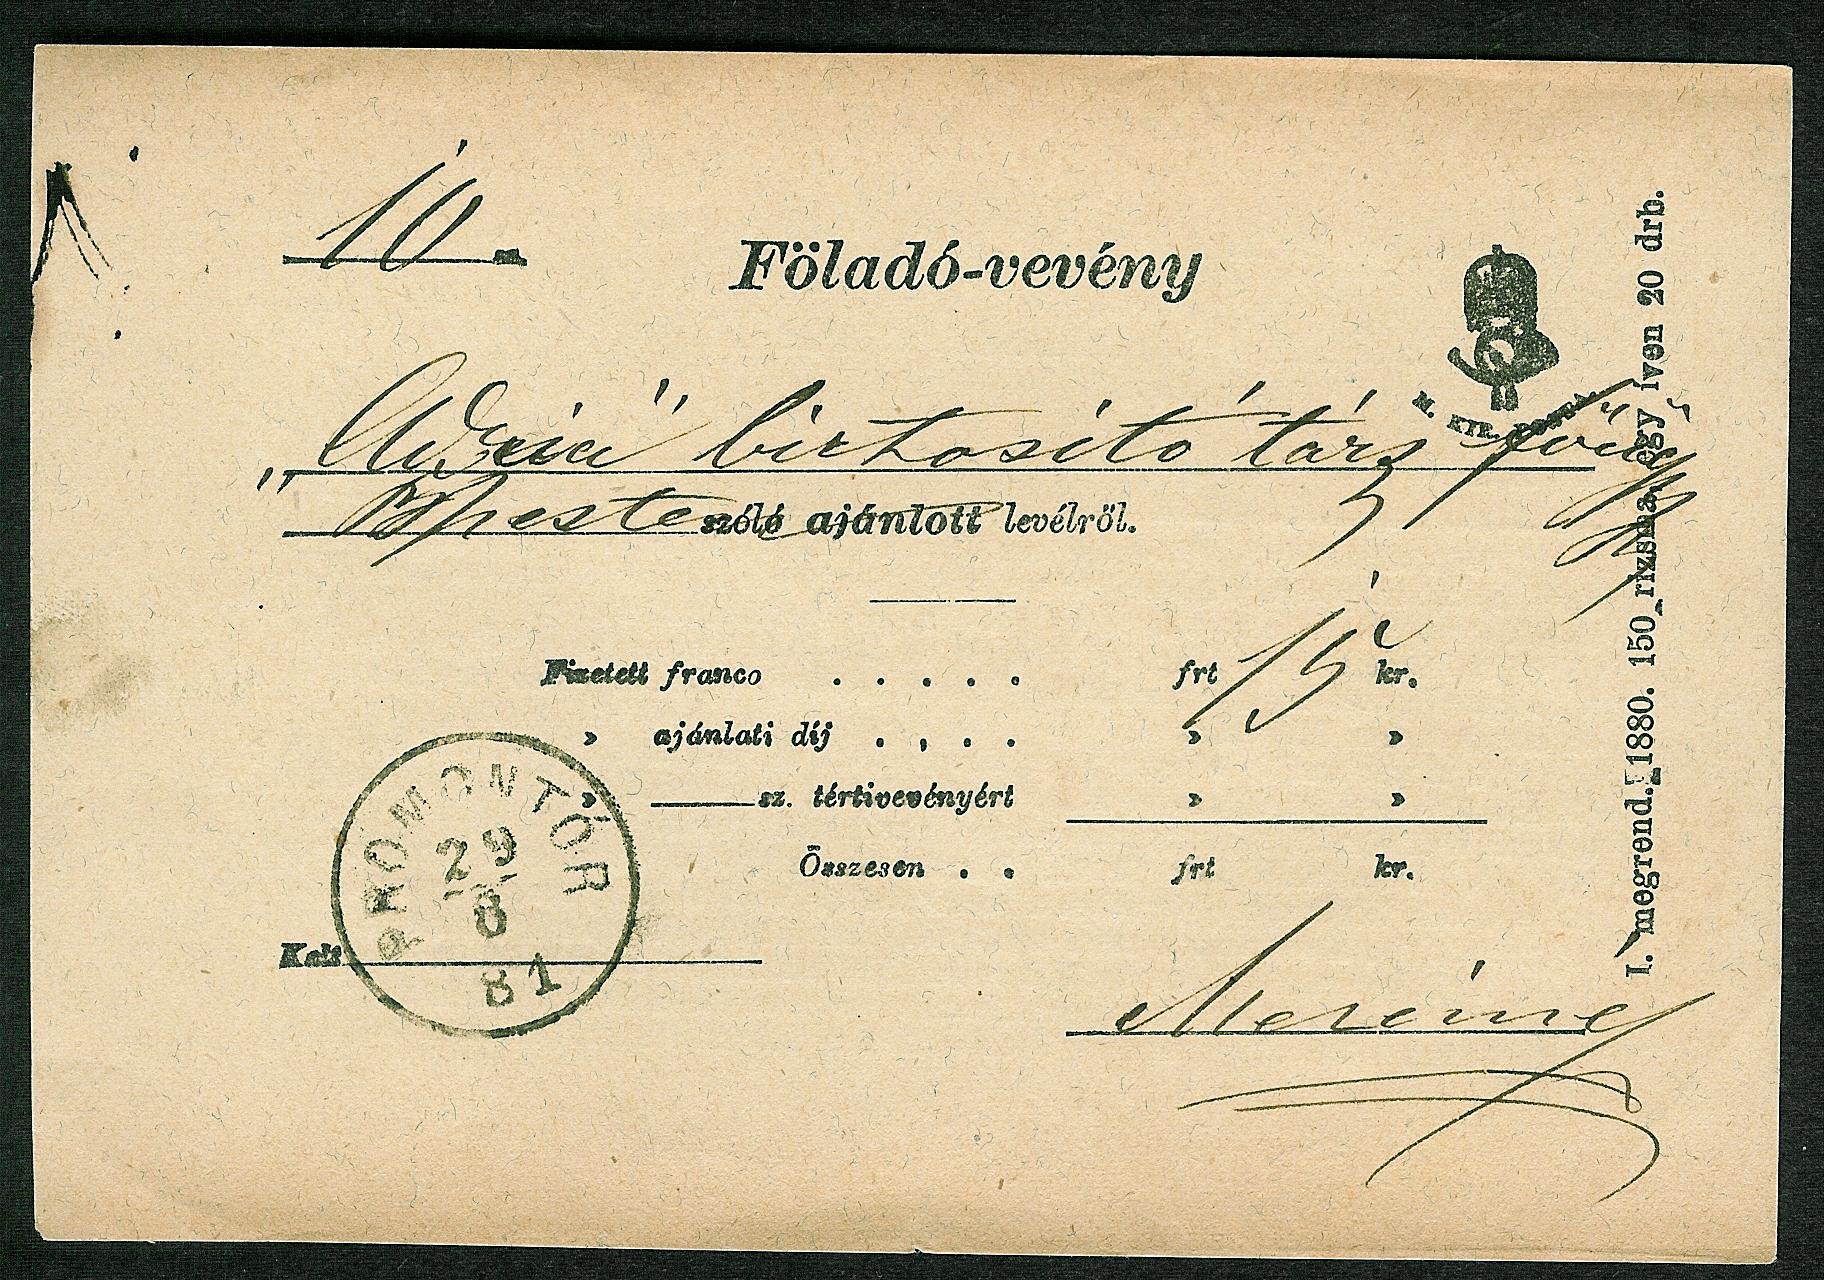 10
Föladó-vevény
M. KIR. POSTA
„Adria" biztosító társ főüg
Bpesten szóló ajánlott levélről.
Fizetett franco . . . . . frt 15 kr.
» ajánlati díj . . . . » »
» sz. tértivevényért » »
Összesen . . frt kr.
PROMONTÓR
29
8
81
Kelt
I. megrend. 1880. 150 rizsma, egy iven 20 drb.